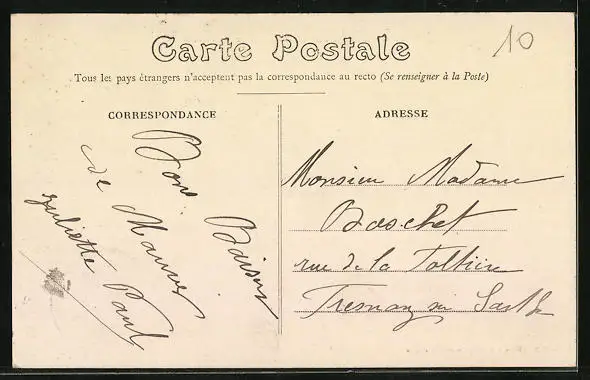 Carte Postale
10
Tous les pays étrangers n'acceptent pas la correspondance au recto (Se renseigner à la Poste)
CORRESPONDANCE
ADRESSE
Bons Baisers
de Mamers
Juliette Paul
Monsieur Madame
Boschet
rue de la
Fresnay sur Sarthe